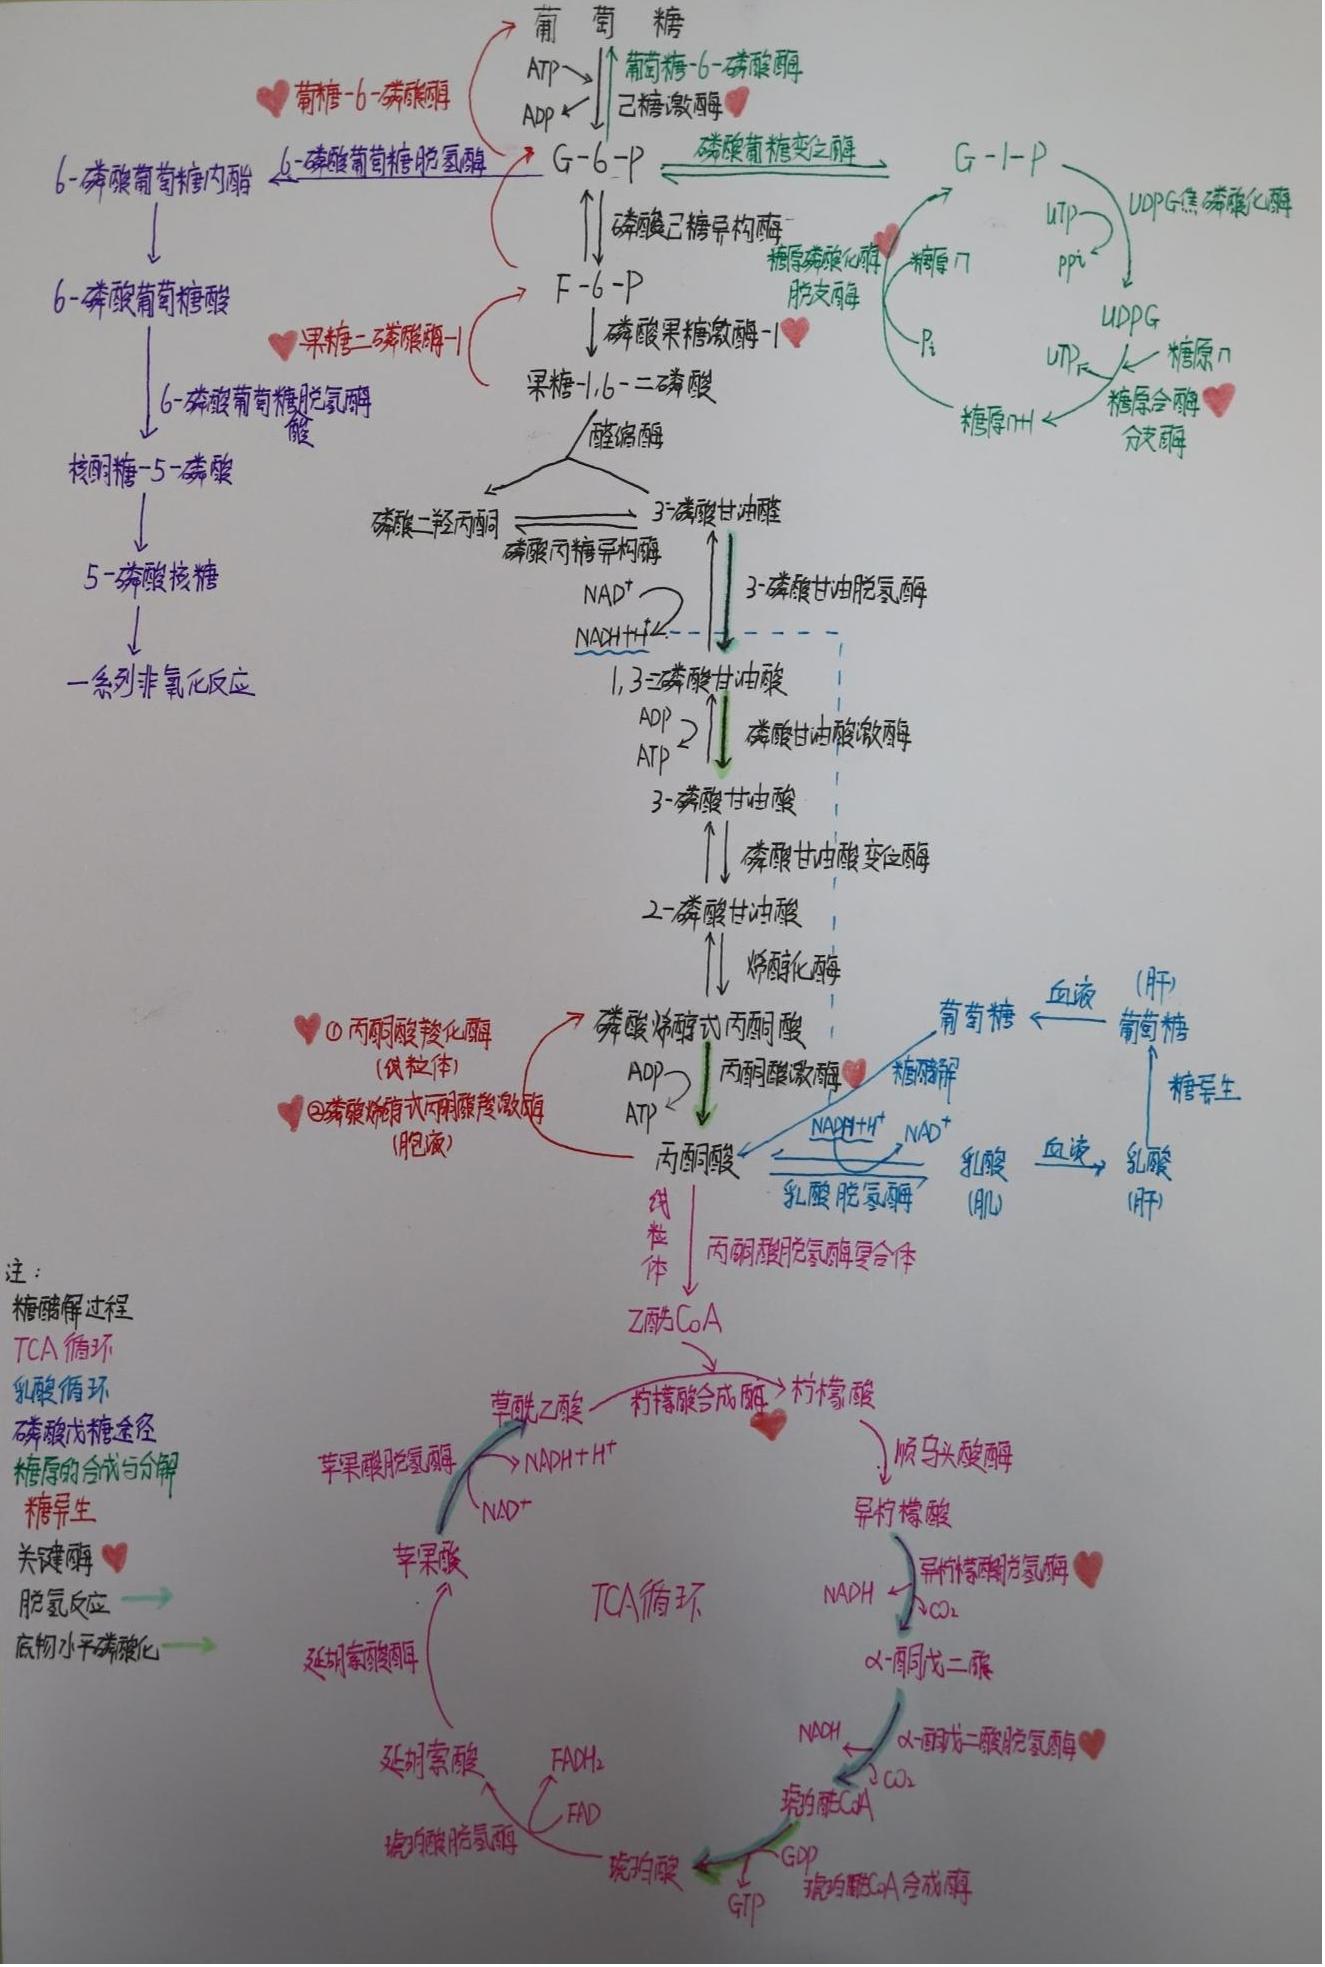 葡 萄 糖
ATP
ADP
葡萄糖-6-磷酸酶
己糖激酶
葡糖-6-磷酸酶
6-磷酸葡萄糖内酯
6-磷酸葡萄糖脱氢酶
G-6-P
磷酸葡糖变位酶
G-1-P
UDPG焦磷酸化酶
UTP
ppi
磷酸己糖异构酶
糖原磷酸化酶
脱支酶
糖原n
Pi
6-磷酸葡萄糖酸
F-6-P
UDPG
果糖二磷酸酶-1
磷酸果糖激酶-1
UTP
糖原n
果糖-1,6-二磷酸
糖原n+1
糖原合酶
分支酶
6-磷酸葡萄糖脱氢酶
酸
醛缩酶
核酮糖-5-磷酸
磷酸二羟丙酮
3-磷酸甘油醛
磷酸丙糖异构酶
5-磷酸核糖
NAD⁺
NADH+H⁺
3-磷酸甘油脱氢酶
一系列非氧化反应
1,3-二磷酸甘油酸
ADP
ATP
磷酸甘油酸激酶
3-磷酸甘油酸
磷酸甘油酸变位酶
2-磷酸甘油酸
烯醇化酶
①丙酮酸羧化酶
(线粒体)
②磷酸烯醇式丙酮酸羧激酶
(胞液)
磷酸烯醇式丙酮酸
ADP
ATP
丙酮酸激酶
葡萄糖
血液
(肝)
葡萄糖
糖酵解
糖异生
NADH+H⁺
NAD⁺
丙酮酸
乳酸脱氢酶
乳酸
(肌)
血液
乳酸
(肝)
线粒体
丙酮酸脱氢酶复合体
乙酰CoA
注:
糖酵解过程
TCA循环
乳酸循环
磷酸戊糖途径
糖原的合成与分解
糖异生
关键酶
脱氢反应
底物水平磷酸化
草酰乙酸
柠檬酸合成酶
柠檬酸
苹果酸脱氢酶
NADH+H⁺
NAD⁺
顺乌头酸酶
异柠檬酸
苹果酸
TCA循环
NADH
异柠檬酸脱氢酶
CO₂
延胡索酸酶
α-酮戊二酸
延胡索酸
FADH₂
FAD
NADH
α-酮戊二酸脱氢酶
CO₂
琥珀酰CoA
琥珀酸脱氢酶
琥珀酸
GDP
GTP
琥珀酰CoA合成酶